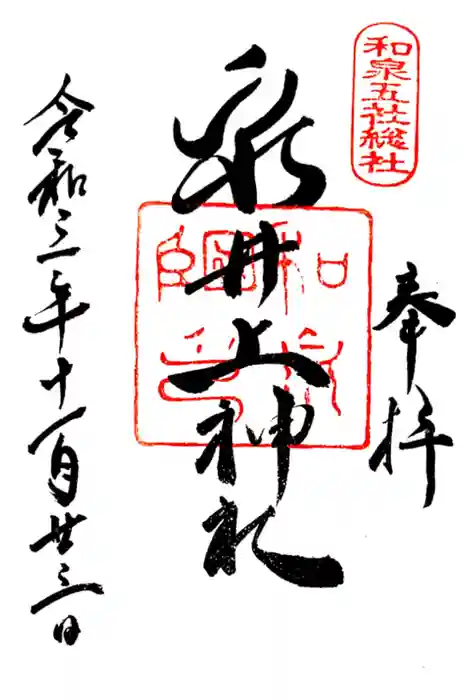 和泉五社総社
奉拝
泉井上神社
令和三年十一月廿三日